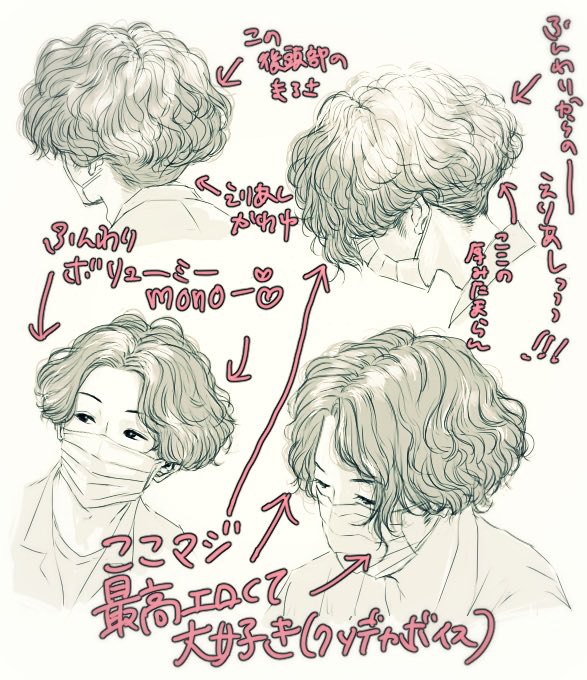 この
後頭部の
まるさ
ふんわりからのー
えりあしっっっ!!!
えりあし
かわゆ
ここの
厚みたまらん
ふんわり
ボリューミー
mono-♡♡
ここマジ
最高エロくて
大好き(クソデカボイス)